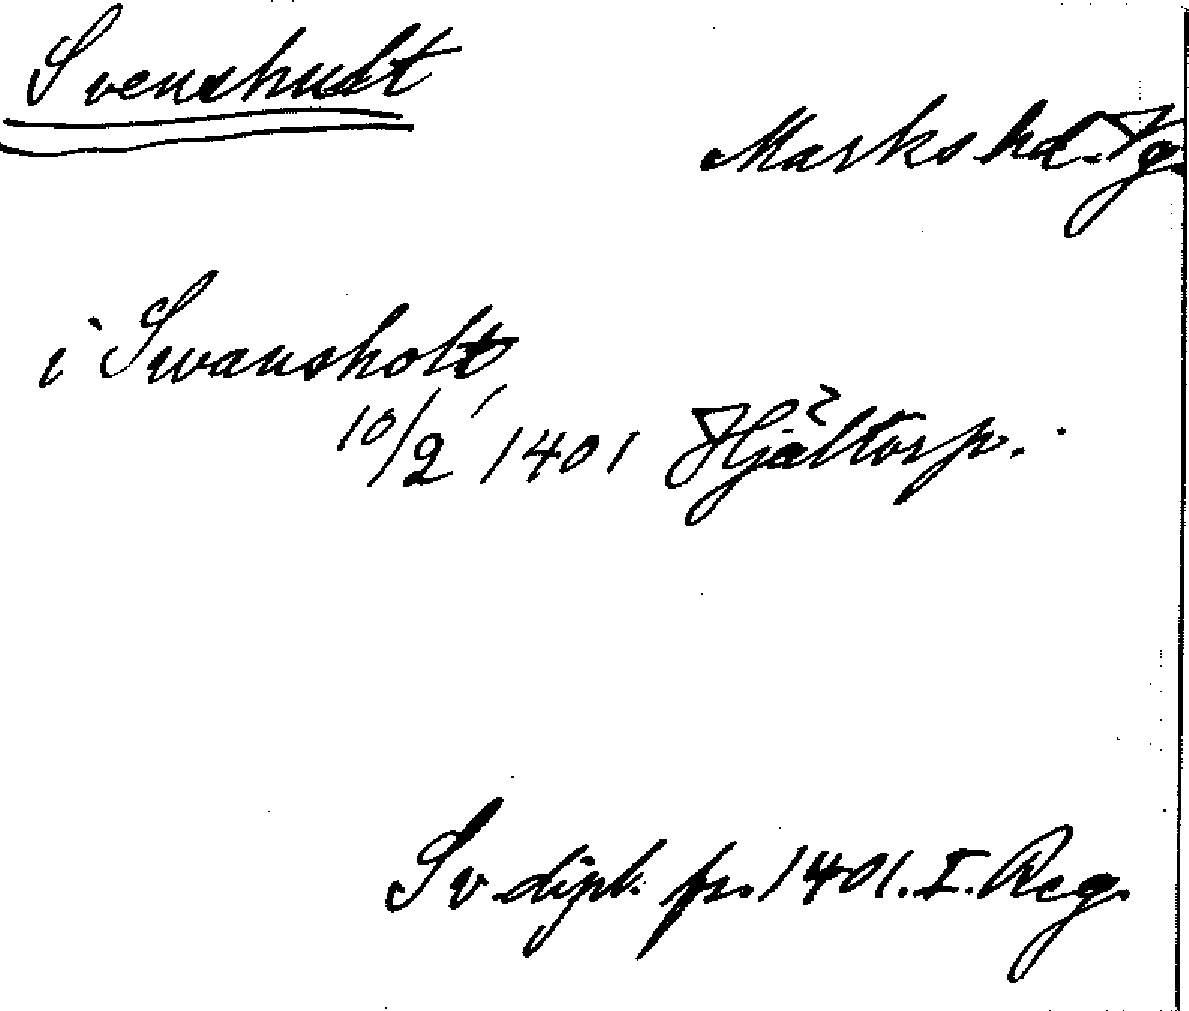 Svenshult
Marks hd. Vg.
i Swansholt
10/2 1401 Hjältorp.
Sv. dipl. fr. 1401. I. Reg.